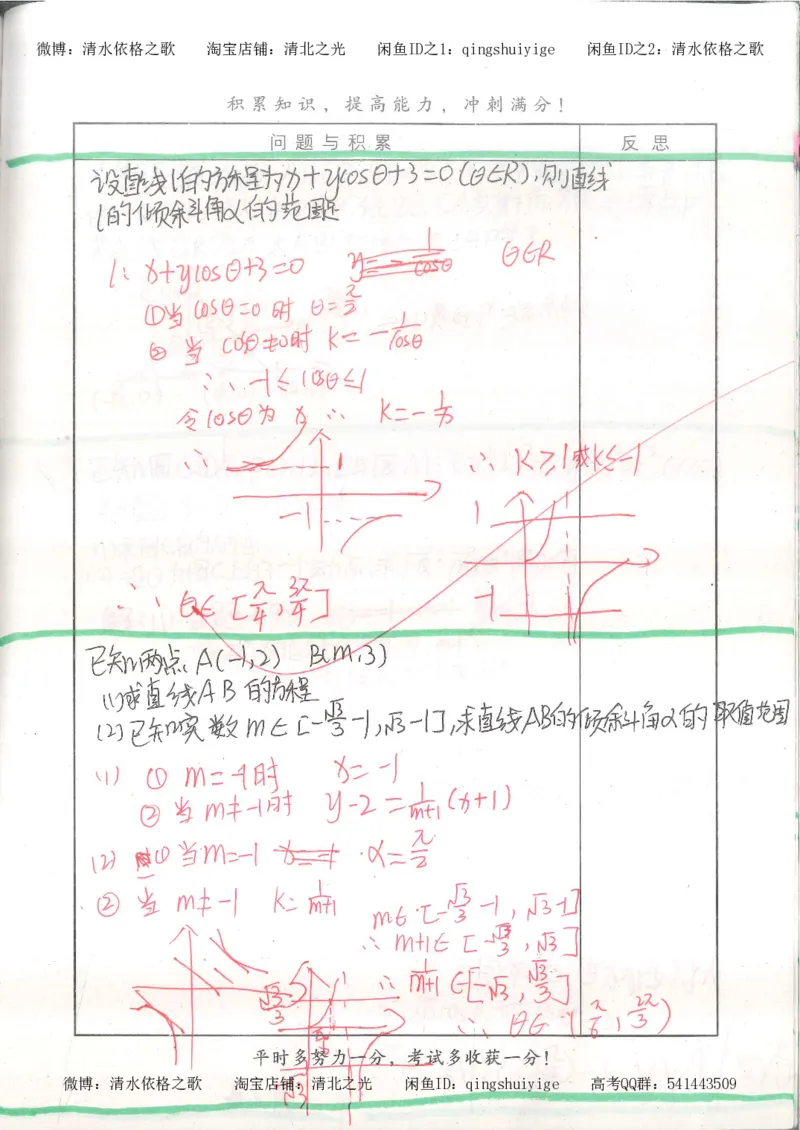 微博：清水依格之歌 淘宝店铺：清北之光 闲鱼ID之1：qingshuiyige 闲鱼ID之2：清水依格之歌
积累知识，提高能力，冲刺满分！
问题与积累 反思
设直线l的方程为x+ycosθ+3=0(θ∈R),则直线
l的倾斜角α的范围是
l: x+ycosθ+3=0 y=-1/cosθ θ∈R
①当cosθ=0时 θ=π/2
②当cosθ≠0时 K=-1/cosθ
∵ -1≤cosθ≤1
令cosθ为x ∴ K=-1/x
∴ 1 ∴ K≥1或K≤-1
-1 1 -1
∴ θ∈[π/4, 3π/4]
已知两点A(-1,2) B(m,3)
(1)求直线AB的方程
(2)已知实数m∈[-√3/3-1,√3-1],求直线AB的倾斜角α的取值范围
(1) ① m=-1时 x=-1
②当m≠-1时 y-2=1/m+1(x+1)
(2) ①当m=-1 α=π/2
②当m≠-1 K=1/m+1 m∈[-√3/3-1,√3-1]
∴ m+1∈[-√3/3,√3]
∴ 1/m+1∈[-√3,√3/3]
√3/3 ∴ θ∈(π/6, 2π/3)
平时多努力一分，考试多收获一分！
微博：清水依格之歌 淘宝店铺：清北之光 闲鱼ID：qingshuiyige 高考QQ群：541443509